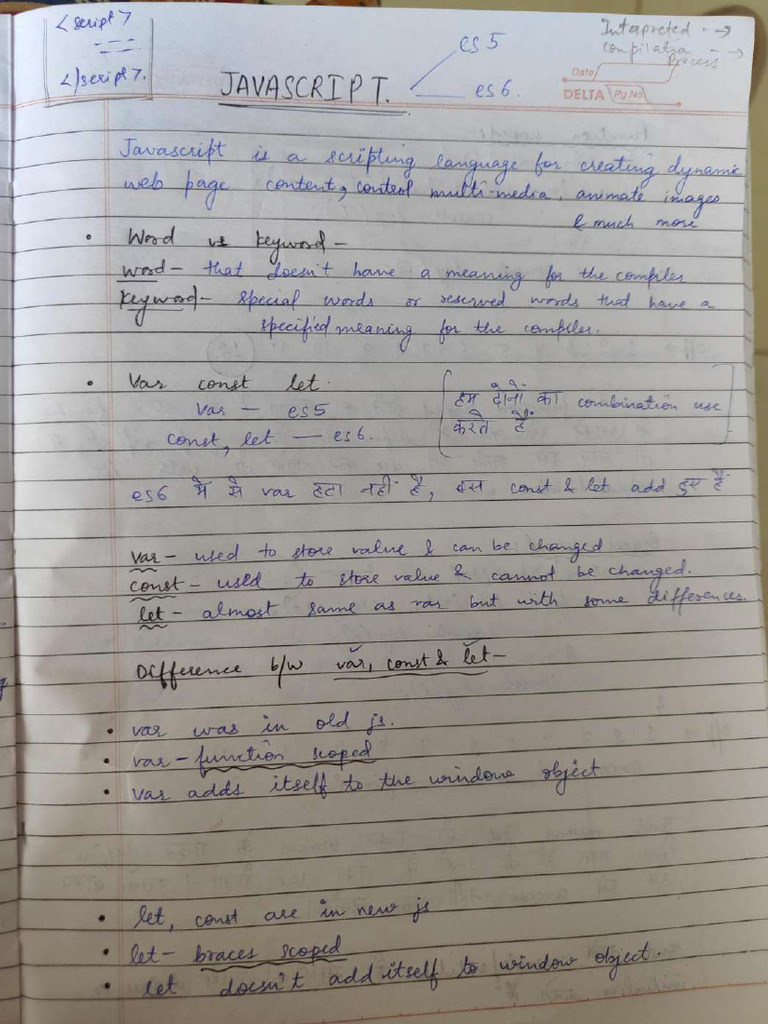 <script>
</script>
Interpreted - ->
Compilation - ->
Process
Date
DELTA Pg No.
JAVASCRIPT.
es5
es6.
Javascript is a scripting language for creating dynamic
web page content, control multi-media, animate images
& much more
• Word vs keyword -
word - that doesn't have a meaning for the compiler
keyword - special words or reserved words that have a
specified meaning for the compiler.
• Var const let.
var - es5
const, let - es6.
हम दोनों का combination use
करते हैं
es6 में से var हटा नहीं है, बस const & let add हुए हैं
var - used to store value & can be changed
const - used to store value & cannot be changed.
let - almost same as var but with some differences.
Difference b/w var, const & let -
• var was in old js.
• var - function scoped
• var adds itself to the window object
• let, const are in new js
• let - braces scoped
• let doesn't add itself to window object.